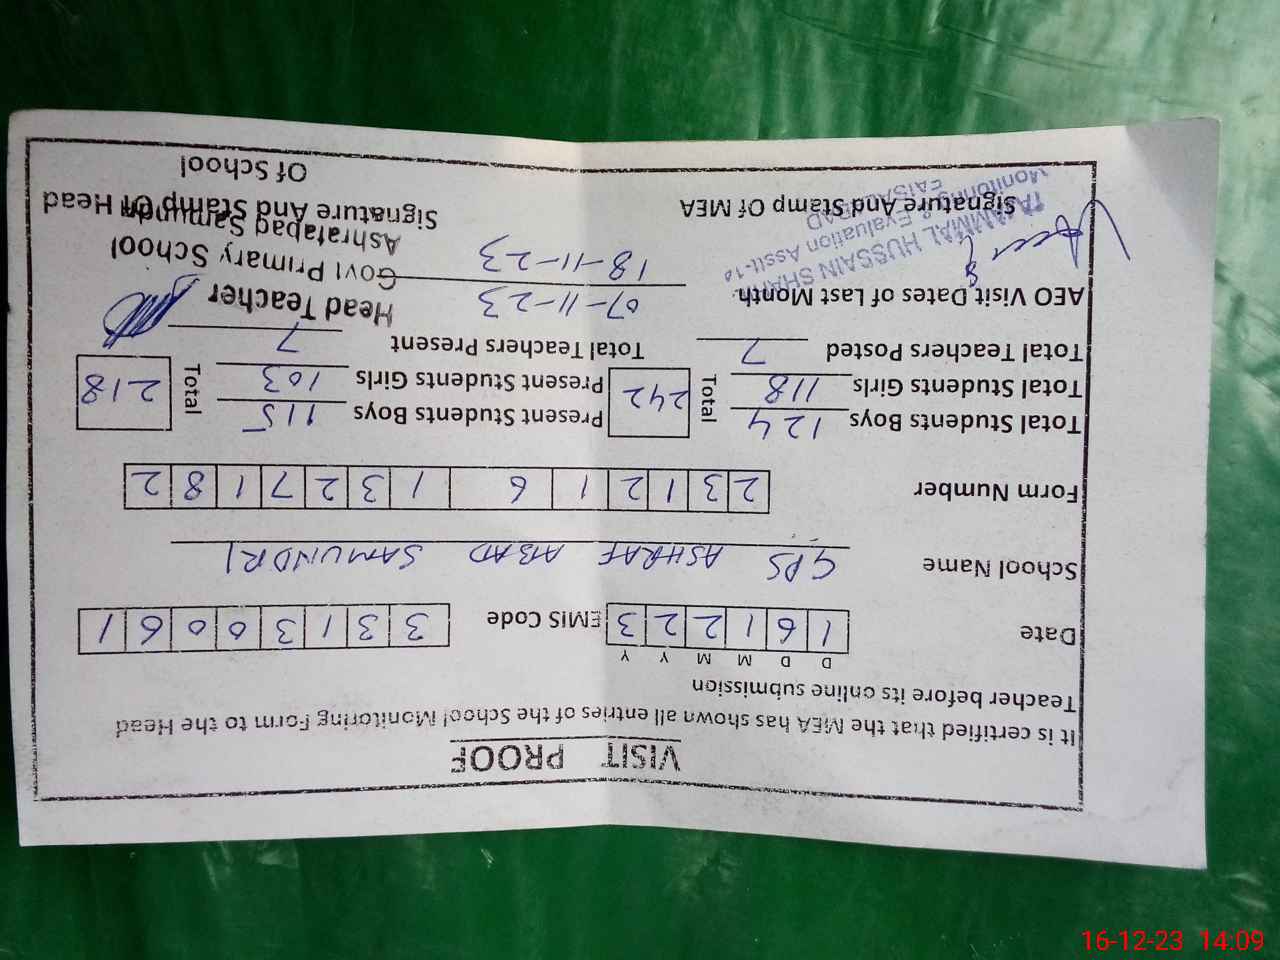 VISIT PROOF
It is certified that the MEA has shown all entries of the School Monitoring Form to the Head
Teacher before its online submission
D D M M Y Y
Date 1 6 1 2 2 3 EMIS Code 3 3 1 3 0 0 6 1
School Name GPS ASHRAF ABAD SAMUNDRI
Form Number 2 3 1 2 1 6 1 3 2 7 1 8 2
Total Students Boys 124 Total 242 Present Students Boys 115 Total 218
Total Students Girls 118 Present Students Girls 103
Total Teachers Posted 7 Total Teachers Present 7
AEO Visit Dates of Last Month 07-11-23
18-11-23
Head Teacher
Govt Primary School
Ashrafabad
Signature And Stamp Of MEA
HUSSAIN
Monitoring & Evaluation
Signature And Stamp Of Head
Of School
16-12-23 14:09